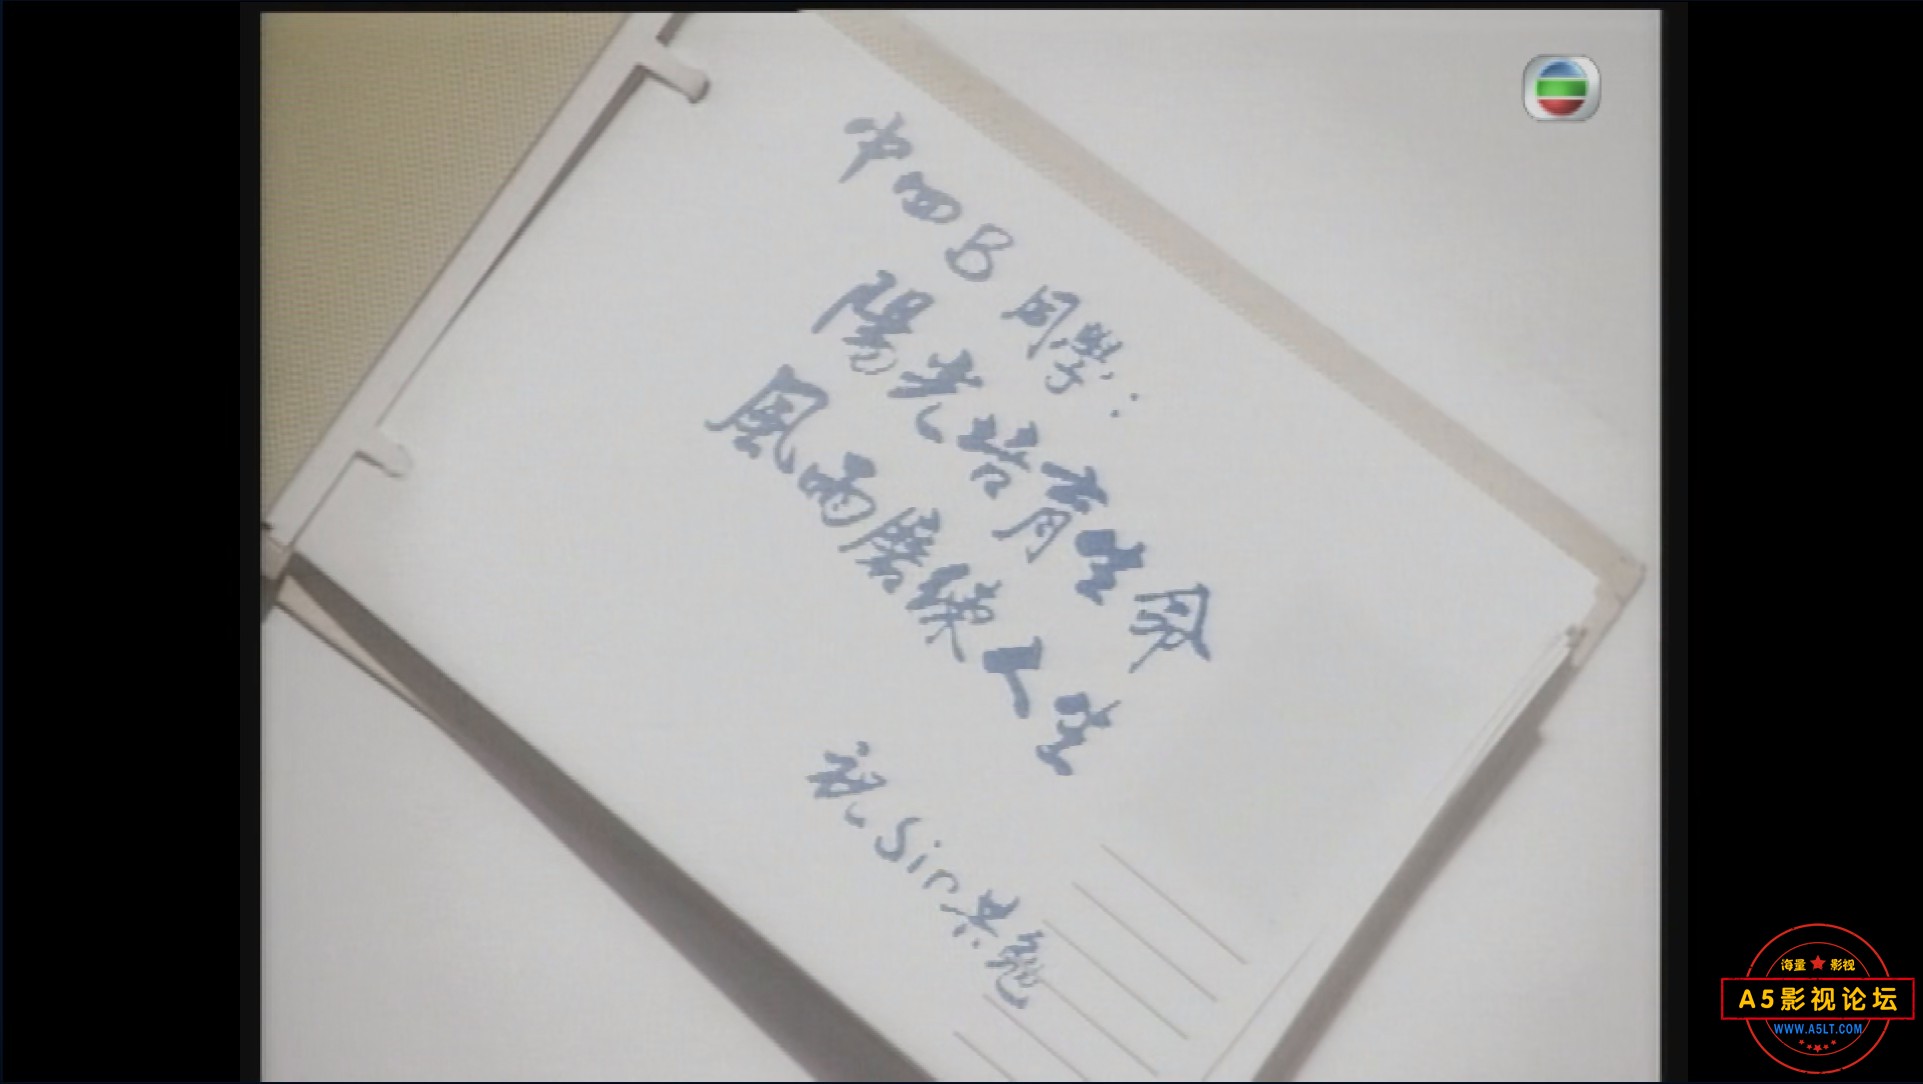 中四B同學:
陽光培育生
風雨磨練人生
祝Sir共勉
海量 影视
A5影视论坛
WWW.A5LT.COM